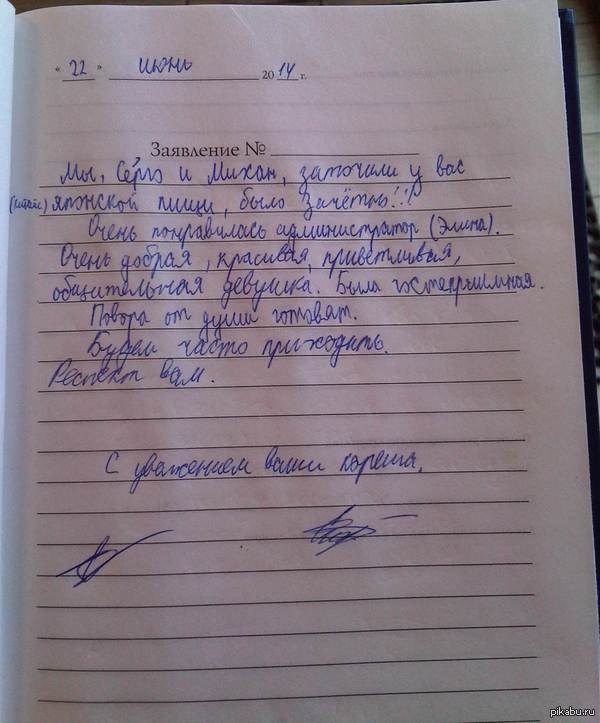 " 22 " июнь 2014 г.
Заявление №
Мы, Серго и Михан, заточили у вас
(китайс) японской пищи, было зачётно!!!
Очень понравилась администратор (Элина).
Очень добрая, красивая, приветливая,
общительная девушка. Была гостеприимная.
Повора от души готовят.
Будем часто приходить.
Респект вам.
С уважением ваши кореша.
pikabu.ru